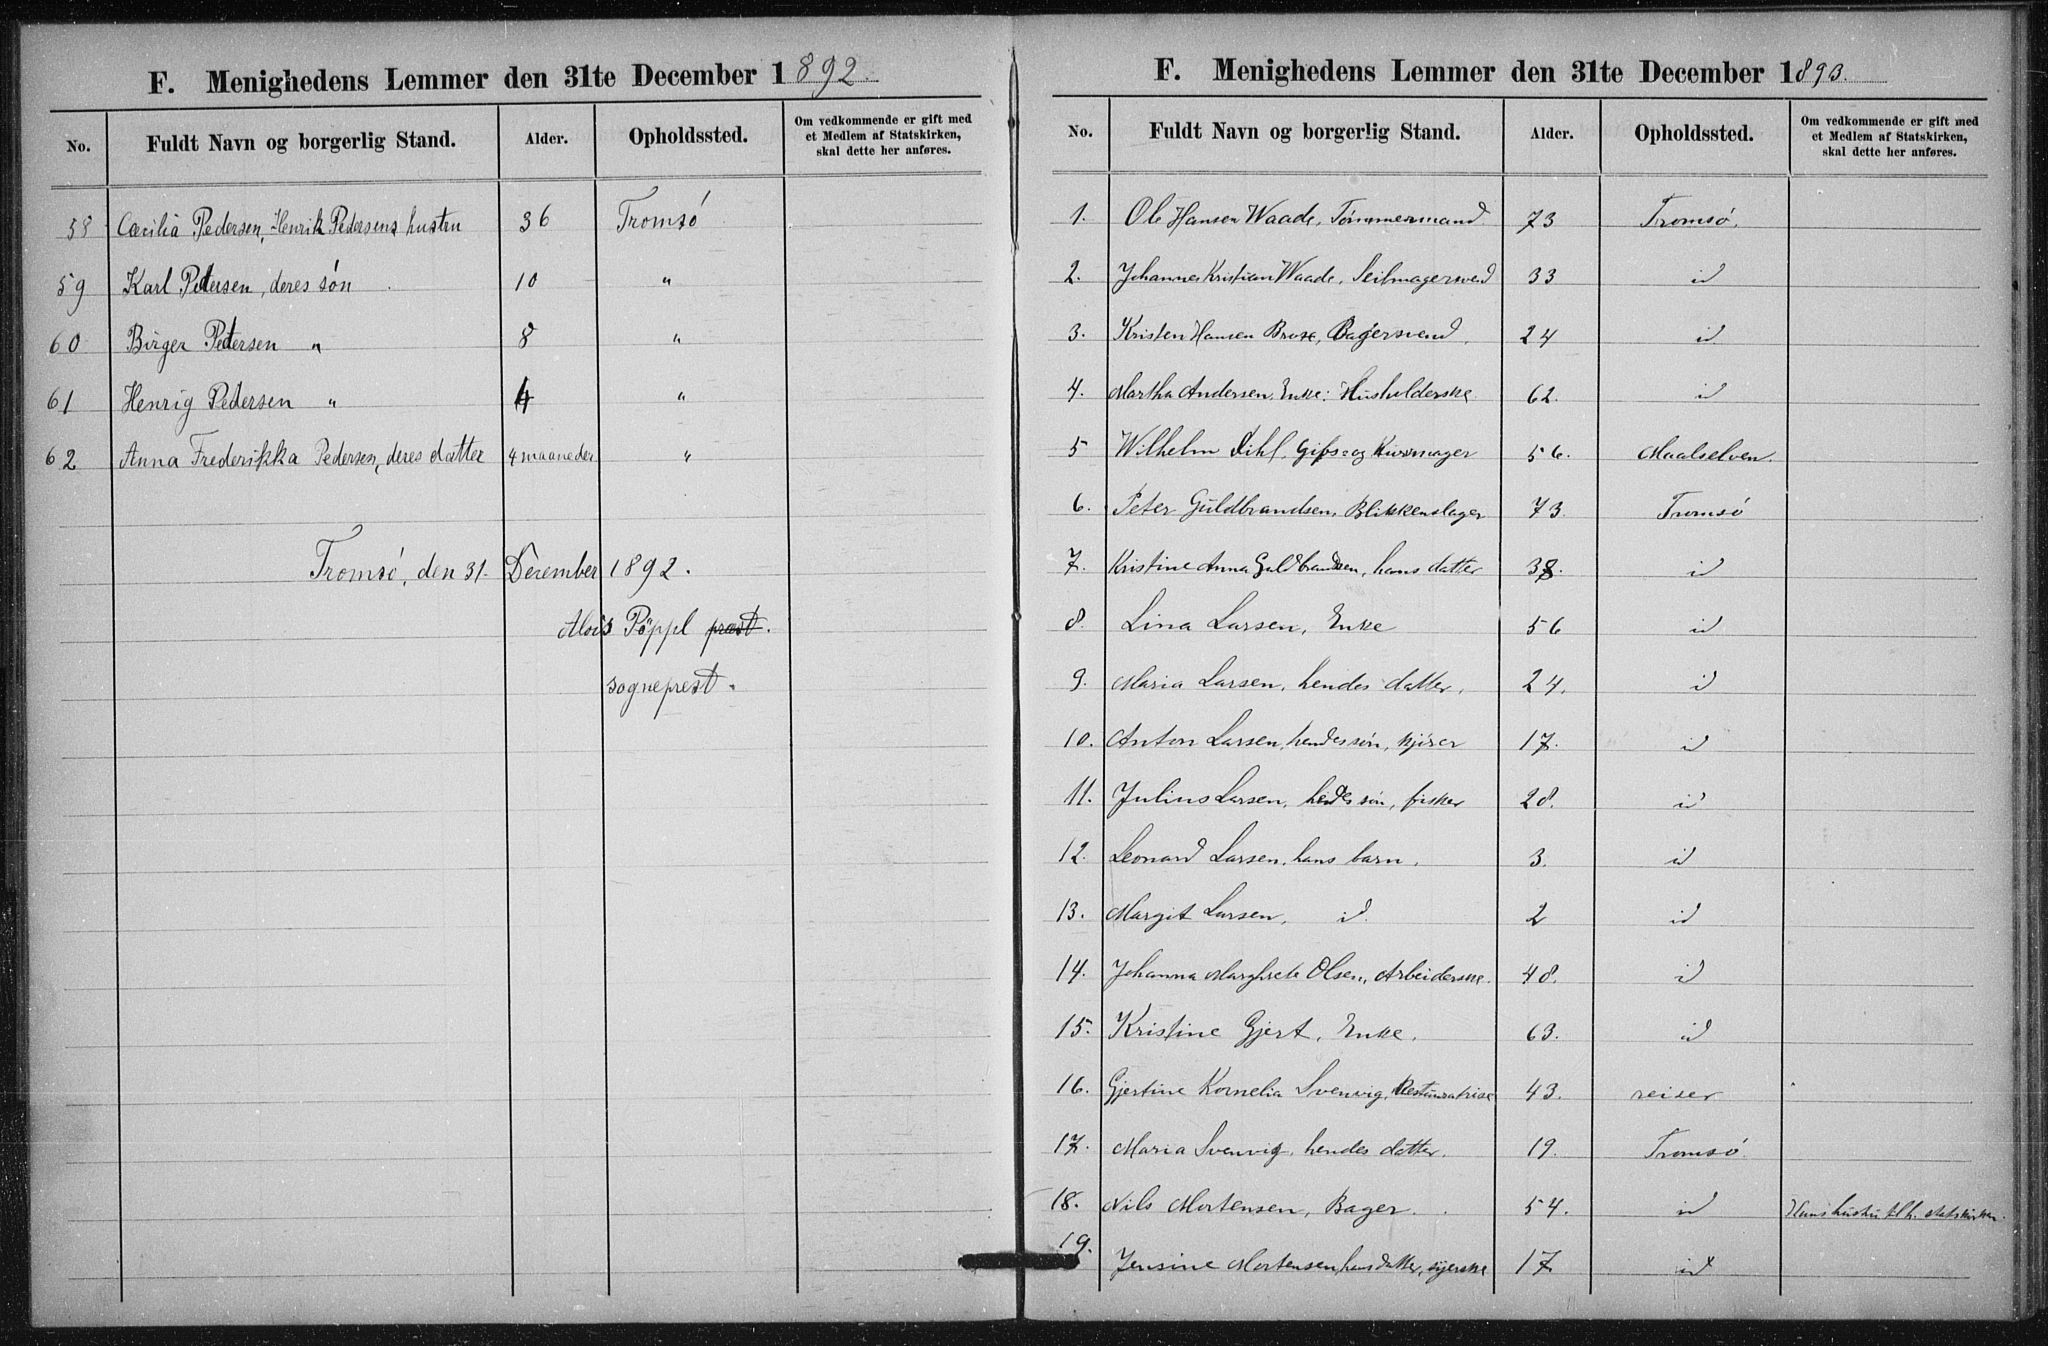 F. Menighedens Lemmer den 31te December 1892.
No. Fuldt Navn og borgerlig Stand. Alder. Opholdssted. Om vedkommende er gift med
et Medlem af Statskirken,
skal dette her anføres.
58 Cæcilia Pedersen, Henrik Pedersens hustru 36 Tromsö
59 Karl Petersen, deres sön 10 "
60 Birger Petersen " 8 "
61 Henrig Pedersen " 4 "
62 Anna Frederikka Pedersen, deres datter 4 maaneder "
Tromsö, den 31. December 1892.
Alois Pöppl prest.
sogneprest.
F. Menighedens Lemmer den 31te December 1893.
No. Fuldt Navn og borgerlig Stand. Alder. Opholdssted. Om vedkommende er gift med
et Medlem af Statskirken,
skal dette her anføres.
1. Ole Hansen Waade, Tömmermand 73 Tromsö.
2. Johannes Kristian Waade, Seilmagersvend 33 id
3. Kristen Hansen Brose, Bagersvend. 24 id
4. Martha Andersen, Enke: Husholderske 62. id
5 Wilhelm Dihl, Gips- og Kurvmager 56. Maalselven.
6. Peter Guldbrandsen, Blikkenslager 73. Tromsö
7. Kristine Anna Guldbrandsen, hans datter 38. id
8. Lina Larsen, Enke 56 id
9. Maria Larsen, hendes datter. 24. id
10. Anton Larsen, hendes sön, kjörer 17. id
11. Julius Larsen, hendes sön, fisker 28. id
12. Leonard Larsen, hans barn. 3. id
13. Margit Larsen, id 2 id
14. Johanna Margrete Olsen, Arbeiderske. 48. id
15. Kristine Gjert, Enke. 63. id
16. Gjertine Kornelia Svenvig, Restauratrise 43. reiser
17. Maria Svenvig, hendes datter. 19. Tromsö
18. Nils Mortensen, Bager. 54. id Hans hustru statskirken.
19. Jensine Mortensen, hans datter, syerske 17 id